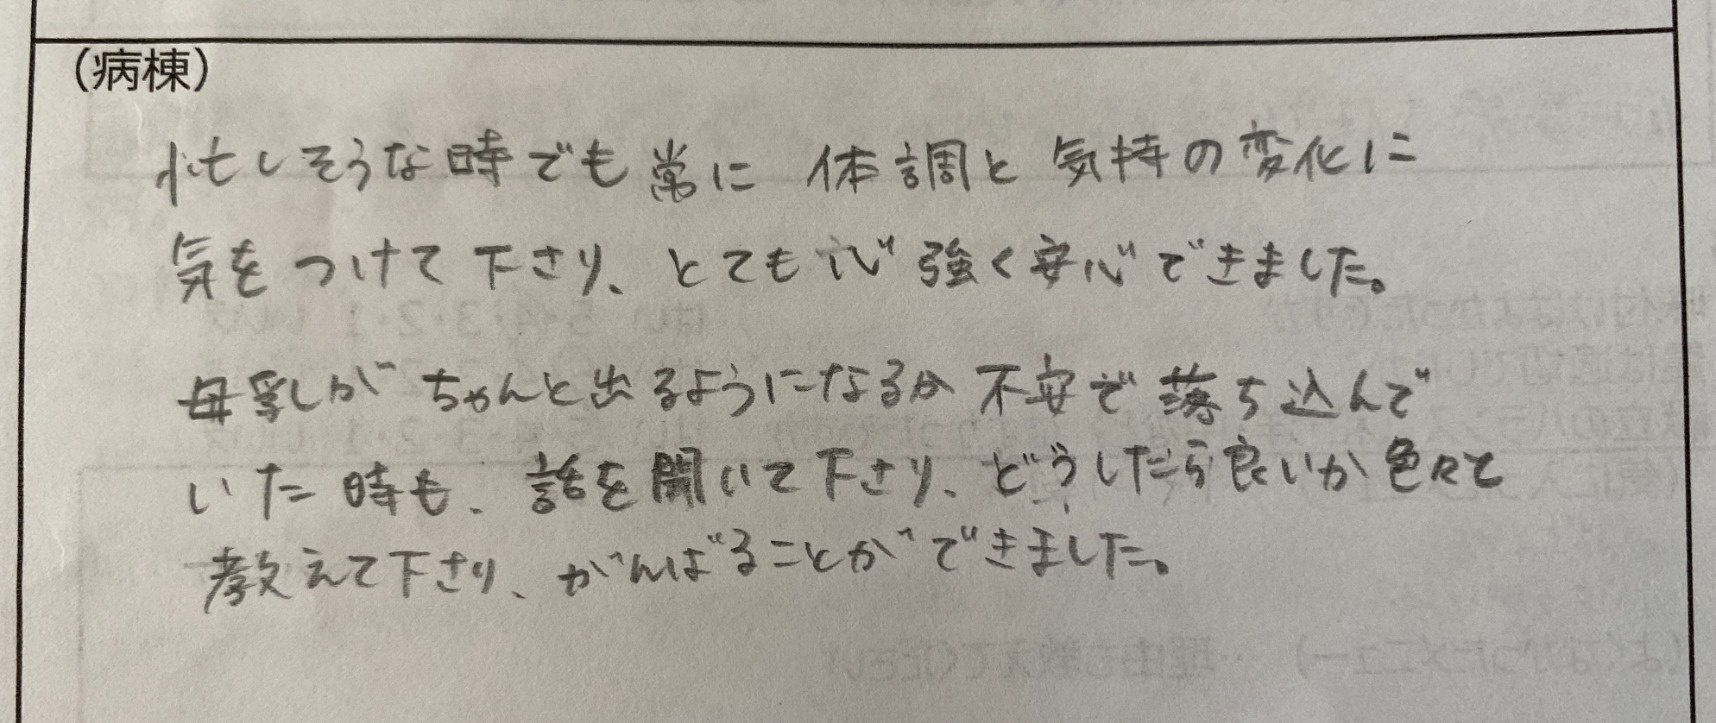 （病棟）
忙しそうな時でも常に 体調と気持の変化に
気をつけて下さり、とても心強く安心できました。
母乳がちゃんと出るようになるか不安で落ち込んで
いた時も、話を聞いて下さり、どうしたら良いか色々と
教えて下さり、がんばることができました。